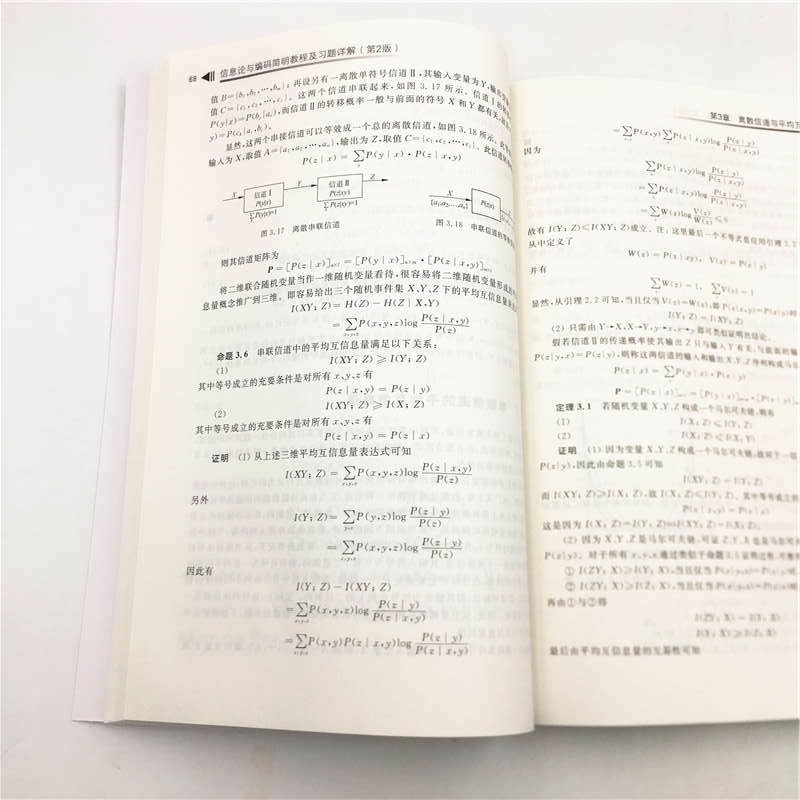 68 信息论与编码简明教程及习题详解(第2版)
值 B={b₁,b₂,…,bₘ};再设另有一离散单符号信道Ⅱ,其输入变量为Y,输出
值 C={c₁,c₂,…,cₗ}。这两个信道串联起来,如图 3.17 所示。信道Ⅰ的转移
P(y|x)=P(bⱼ|aᵢ),而信道Ⅱ的转移概率一般与前面的符号 X 和 Y 都有关
y)=P(cₖ|aᵢ,bⱼ)。
显然,这两个串接信道可以等效成一个总的离散信道,如图 3.18 所示,此
输入为 X,取值 A={a₁,a₂,…,aₙ},输出为 Z,取值 C={c₁,c₂,…,cₗ}。此信道
P(z|x) = ∑P(y|x)·P(z|x,y)
X 信道Ⅰ P(y|x) ∑P(y|x)=1 Y 信道Ⅱ P(z|xy) ∑P(z|xy)=1 Z
X {a₁,a₂,…,aₙ} P(z|x)
图 3.17 离散串联信道
图 3.18 串联信道的等
则其信道矩阵为
P=[P(z|x)]ₙₓₗ=[P(y|x)]ₙₓₘ·[P(z|x,y)]ₘₓₗ
将二维联合随机变量当作一维随机变量看待,很容易将二维随机变量形成的
息量概念推广到三维。即容易给出三个随机事件集 X、Y、Z 下的平均互信息量
I(XY;Z)=H(Z)-H(Z|X,Y)
=∑P(x,y,z)log P(z|x,y)/P(z)
x,y,z
命题 3.6 串联信道中的平均互信息量满足以下关系:
(1) I(XY;Z)⩾I(Y;Z)
其中等号成立的充要条件是对所有 x、y、z 有
P(z|x,y)=P(z|y)
(2) I(XY;Z)⩾I(X;Z)
其中等号成立的充要条件是对所有 x、y、z 有
P(z|x,y)=P(z|x)
证明 (1) 从上述三维平均互信息量表达式可知
I(XY;Z)=∑P(x,y,z)log P(z|x,y)/P(z)
x,y,z
另外
I(Y;Z)=∑P(y,z)log P(z|y)/P(z)
y,z
=∑P(x,y,z)log P(z|y)/P(z)
x,y,z
因此有
I(Y;Z)-I(XY;Z)
=∑P(x,y,z)log P(z|y)/P(z|x,y)
x,y,z
=∑P(x,y)P(z|x,y)log P(z|y)/P(z|x,y)
x,y,z
第3章 离散信道与平均互
=∑P(x,y)∑P(z|x,y)log P(z|y)/P(z|x,y)
因为
∑P(z|x,y)log P(z|y)/P(z|x,y)
=∑P(z|x,y)log P(z|y)/P(z|x,y)
=∑W(z)log V(z)/W(z)⩽0
故有 I(Y;Z)⩽I(XY;Z)成立。注:这里最后一个不等式是应用引理 2.2
从中定义了
W(z)=P(z|xy), V(z)=P(z|y)
并有
∑W(z)=1, ∑V(z)=1
显然,从引理 2.2 可知,当且仅当 V(z)=W(z),即 P(z|x,y)=P(z|y)时
I(Y;Z)=I(XY;Z)
(2) 只需由 Y→X、X→Y、y→x、x→y 即可类似证明出结论。
假若信道Ⅱ的传递概率使其输出 Z 只与输入 Y 有关,与前面的输
P(z|y,x)=P(z|y),则称这两信道的输入和输出 X、Y、Z 序列构成马尔
P(z|x)=∑P(y|x)·P(z|y)
定理 3.1 若随机变量 X、Y、Z 构成一个马尔可夫链,则有
(1) I(X;Z)⩽I(Y;Z)
(2) I(X;Z)⩽I(X;Y)
证明 (1) 因为变量 X、Y、Z 构成一个马尔可夫链,故对于一切
P(z|y),因此由命题 3.5 可知
I(XY;Z)=I(Y;Z)
而 I(XY;Z)⩾I(X;Z),故 I(X;Z)⩽I(Y;Z)。其中等号成立的
P(z|x,y)=P(z|x)
(2) 因为 X、Y、Z 是马尔可夫链,可证 Z、Y、X 也是马尔可夫
P(x|y)。对于所有 x、y、z 通过类似于命题 3.5 证明过程,可
① I(ZY;X)⩾I(Y;X),当且仅当
② I(ZY;X)⩾I(Z;X),当且仅当
再由①与②得
I(ZY;X)=I(Y;X)
I(Y;X)⩾I(Z;X)
最后由平均互信息量的互易性可知